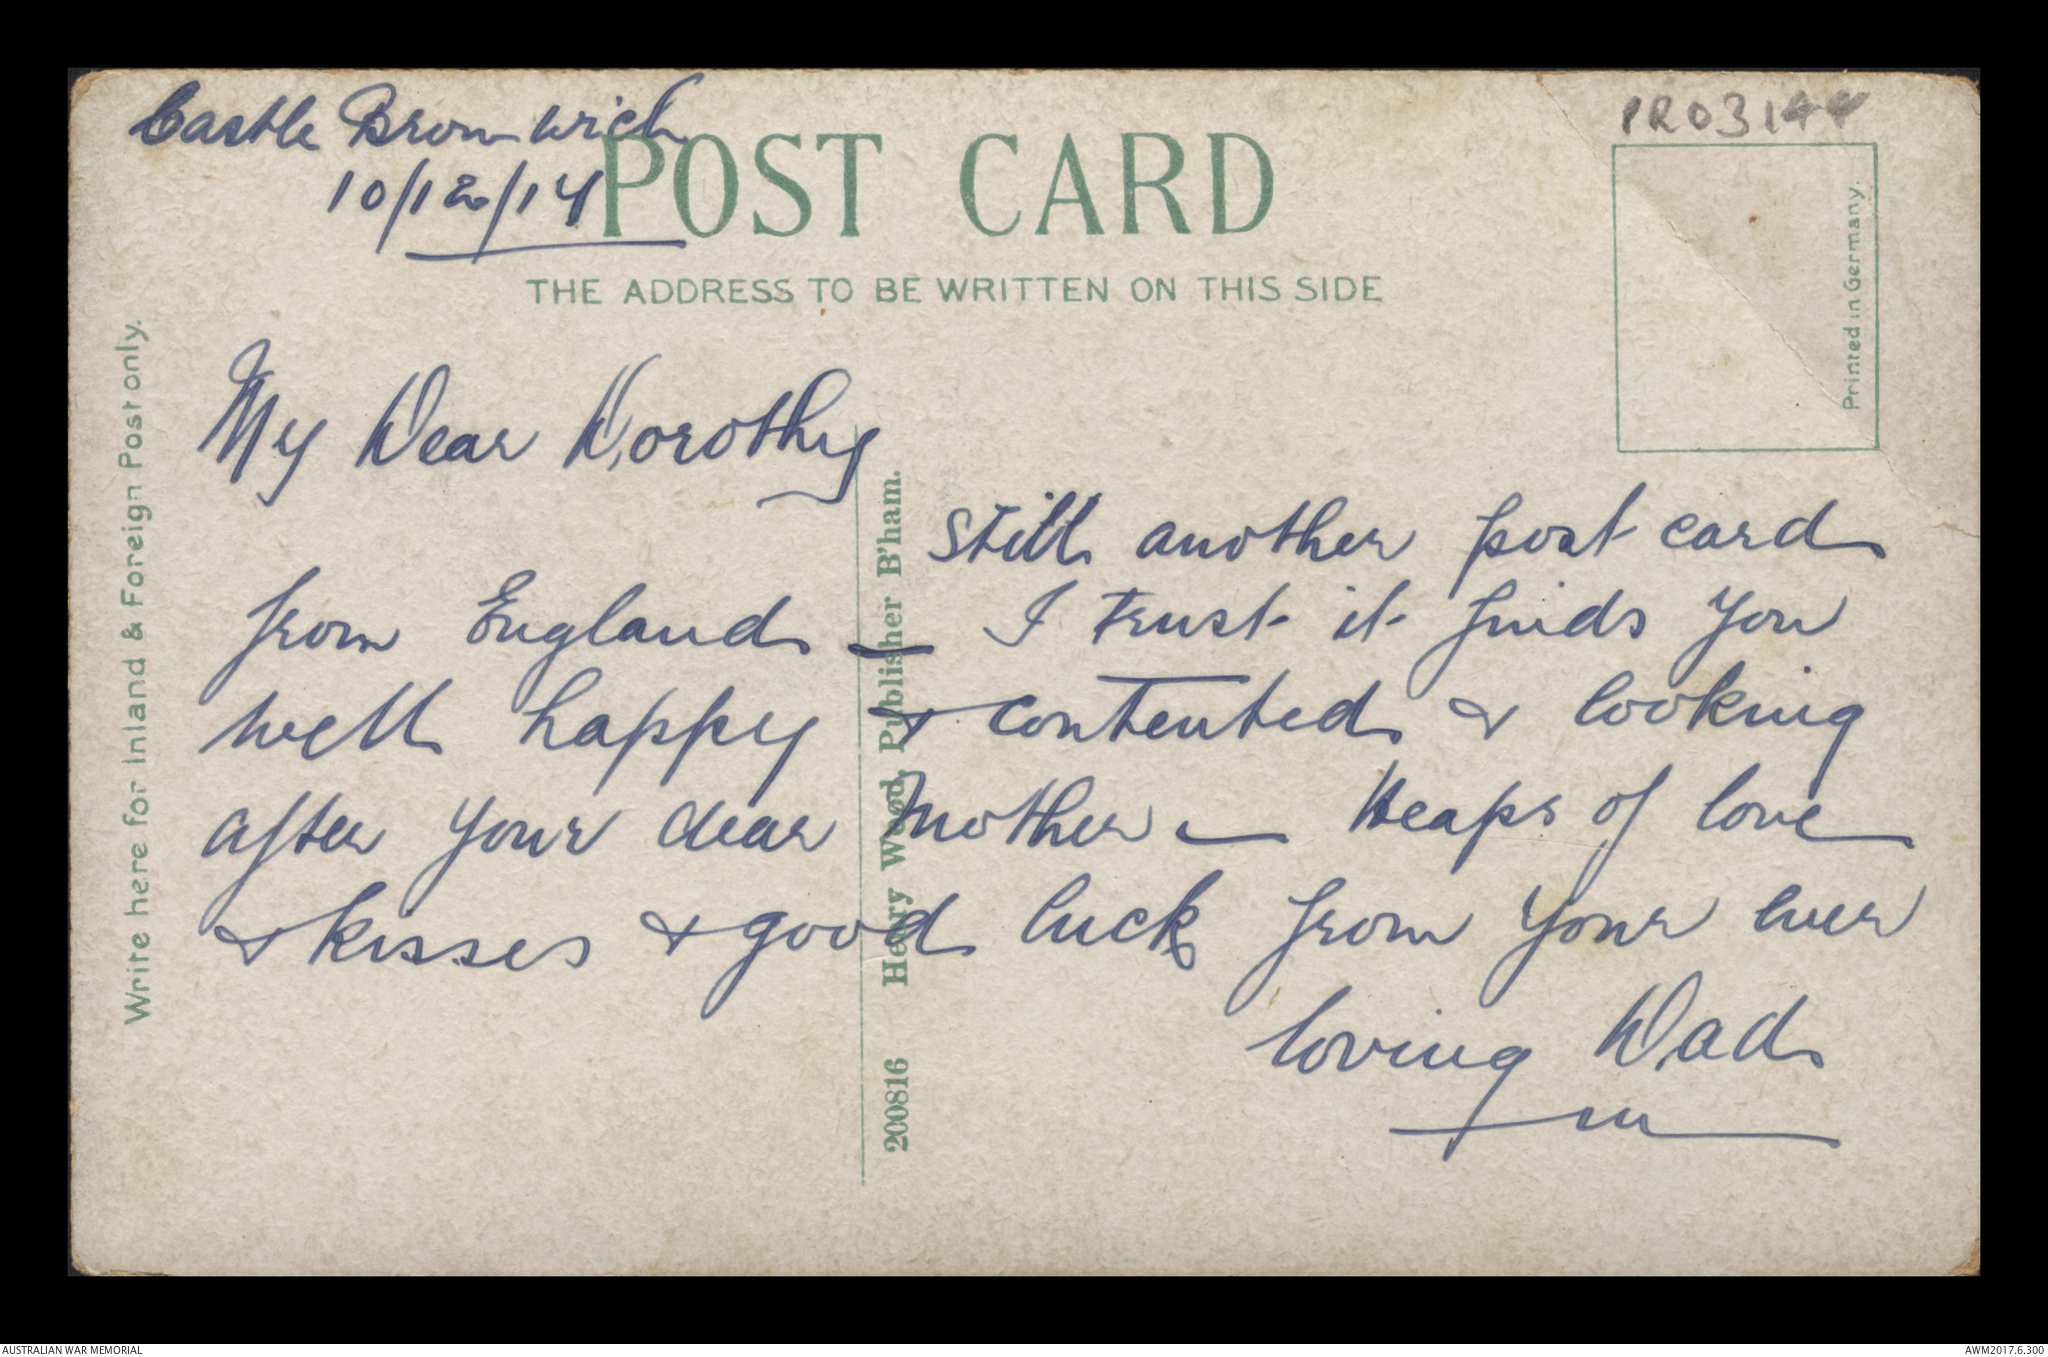 Castle Bromwich
10/12/14
PR03144
POST CARD
THE ADDRESS TO BE WRITTEN ON THIS SIDE
Printed in Germany.
Write here for Inland & Foreign Post only.
Henry Wood, Publisher B'ham.
200816
My Dear Dorothy
still another post card
from England — I trust it finds you
well happy & contented & looking
after your dear Mother — Heaps of love
& kisses & good luck from your ever
loving Dad
AUSTRALIAN WAR MEMORIAL
AWM2017.6.300